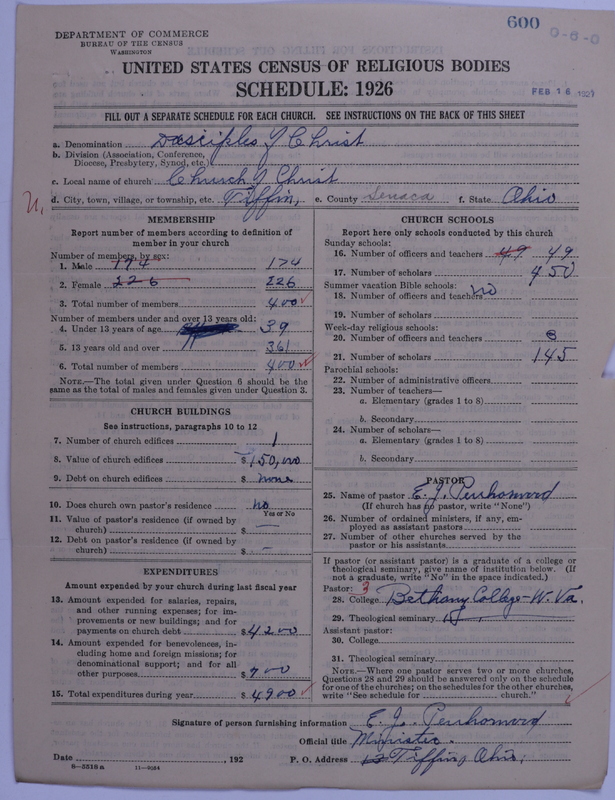 600
0-6-0
DEPARTMENT OF COMMERCE
BUREAU OF THE CENSUS
WASHINGTON
UNITED STATES CENSUS OF RELIGIOUS BODIES
SCHEDULE: 1926
FEB 16 1927
FILL OUT A SEPARATE SCHEDULE FOR EACH CHURCH. SEE INSTRUCTIONS ON THE BACK OF THIS SHEET
a. Denomination Disciples of Christ
b. Division (Association, Conference, Diocese, Presbytery, Synod, etc.)
c. Local name of church Church of Christ
U. d. City, town, village, or township, etc. Tiffin, e. County Senaca f. State Ohio
MEMBERSHIP
Report number of members according to definition of member in your church
Number of members, by sex:
1. Male 174 174
2. Female 226 226
3. Total number of members 400
Number of members under and over 13 years old:
4. Under 13 years of age 39
5. 13 years old and over 361
6. Total number of members 400
NOTE.—The total given under Question 6 should be the same as the total of males and females given under Question 3.
CHURCH BUILDINGS
See instructions, paragraphs 10 to 12
7. Number of church edifices 1
8. Value of church edifices $150,000
9. Debt on church edifices $ none
10. Does church own pastor's residence no
Yes or No
11. Value of pastor's residence (if owned by church) $ —
12. Debt on pastor's residence (if owned by church) $ -
EXPENDITURES
Amount expended by your church during last fiscal year
13. Amount expended for salaries, repairs, and other running expenses; for improvements or new buildings; and for payments on church debt $4200
14. Amount expended for benevolences, including home and foreign missions; for denominational support; and for all other purposes $700
15. Total expenditures during year $4900
CHURCH SCHOOLS
Report here only schools conducted by this church
Sunday schools:
16. Number of officers and teachers 49 49
17. Number of scholars 450
Summer vacation Bible schools:
18. Number of officers and teachers no
19. Number of scholars
Week-day religious schools:
20. Number of officers and teachers 8
21. Number of scholars 145
Parochial schools:
22. Number of administrative officers
23. Number of teachers—
a. Elementary (grades 1 to 8)
b. Secondary
24. Number of scholars—
a. Elementary (grades 1 to 8)
b. Secondary
PASTOR
25. Name of pastor E. J.
(If church has no pastor, write "None")
26. Number of ordained ministers, if any, employed as assistant pastors
27. Number of other churches served by the pastor or his assistants
If pastor (or assistant pastor) is a graduate of a college or theological seminary, give name of institution below. (If not a graduate, write "No" in the space indicated.)
Pastor: 3
28. College Bethany College - W. Va.
29. Theological seminary
Assistant pastor:
30. College
31. Theological seminary
NOTE.—Where one pastor serves two or more churches, Questions 28 and 29 should be answered only on the schedule for one of the churches; on the schedules for the other churches, write "See schedule for church."
Signature of person furnishing information E. J.
Official title Minister
Date , 192 P. O. Address Tiffin, Ohio,
8-5516a 11-9264